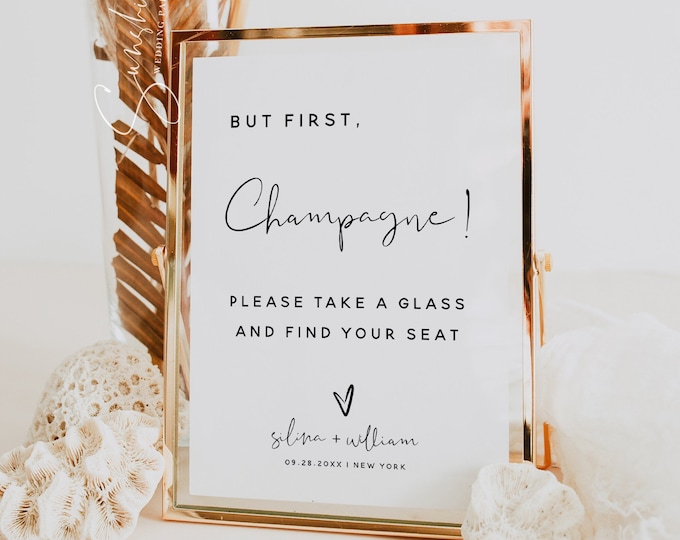 BUT FIRST,
Champagne!
PLEASE TAKE A GLASS
AND FIND YOUR SEAT
silina + william
09.28.20XX | NEW YORK